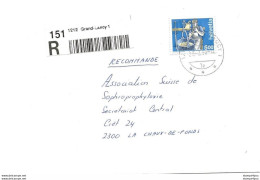 151 1212 Grand-Lancy 1
R
RECOMMANDE
Association Suisse de
Sophroprophylaxie
Secrétariat Central
Crêt 24
2300 LA CHAUX-DE-FONDS